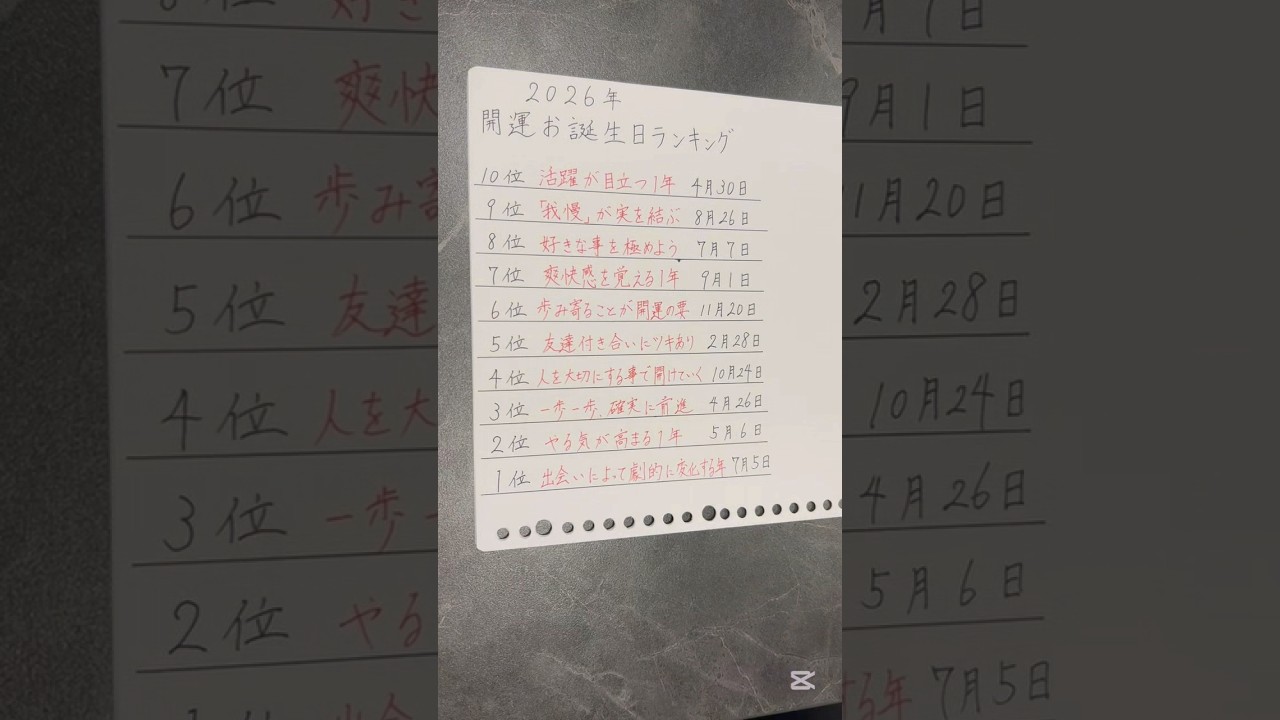 2026年
開運お誕生日ランキング
10位 活躍が目立つ1年 4月30日
9位 「我慢」が実を結ぶ 8月26日
8位 好きな事を極めよう 7月7日
7位 爽快感を覚える1年 9月1日
6位 歩み寄ることが開運の要 11月20日
5位 友達付き合いにツキあり 2月28日
4位 人を大切にする事で開けていく 10月24日
3位 一歩一歩、確実に前進 4月26日
2位 やる気が高まる1年 5月6日
1位 出会いによって劇的に変化する年 7月5日